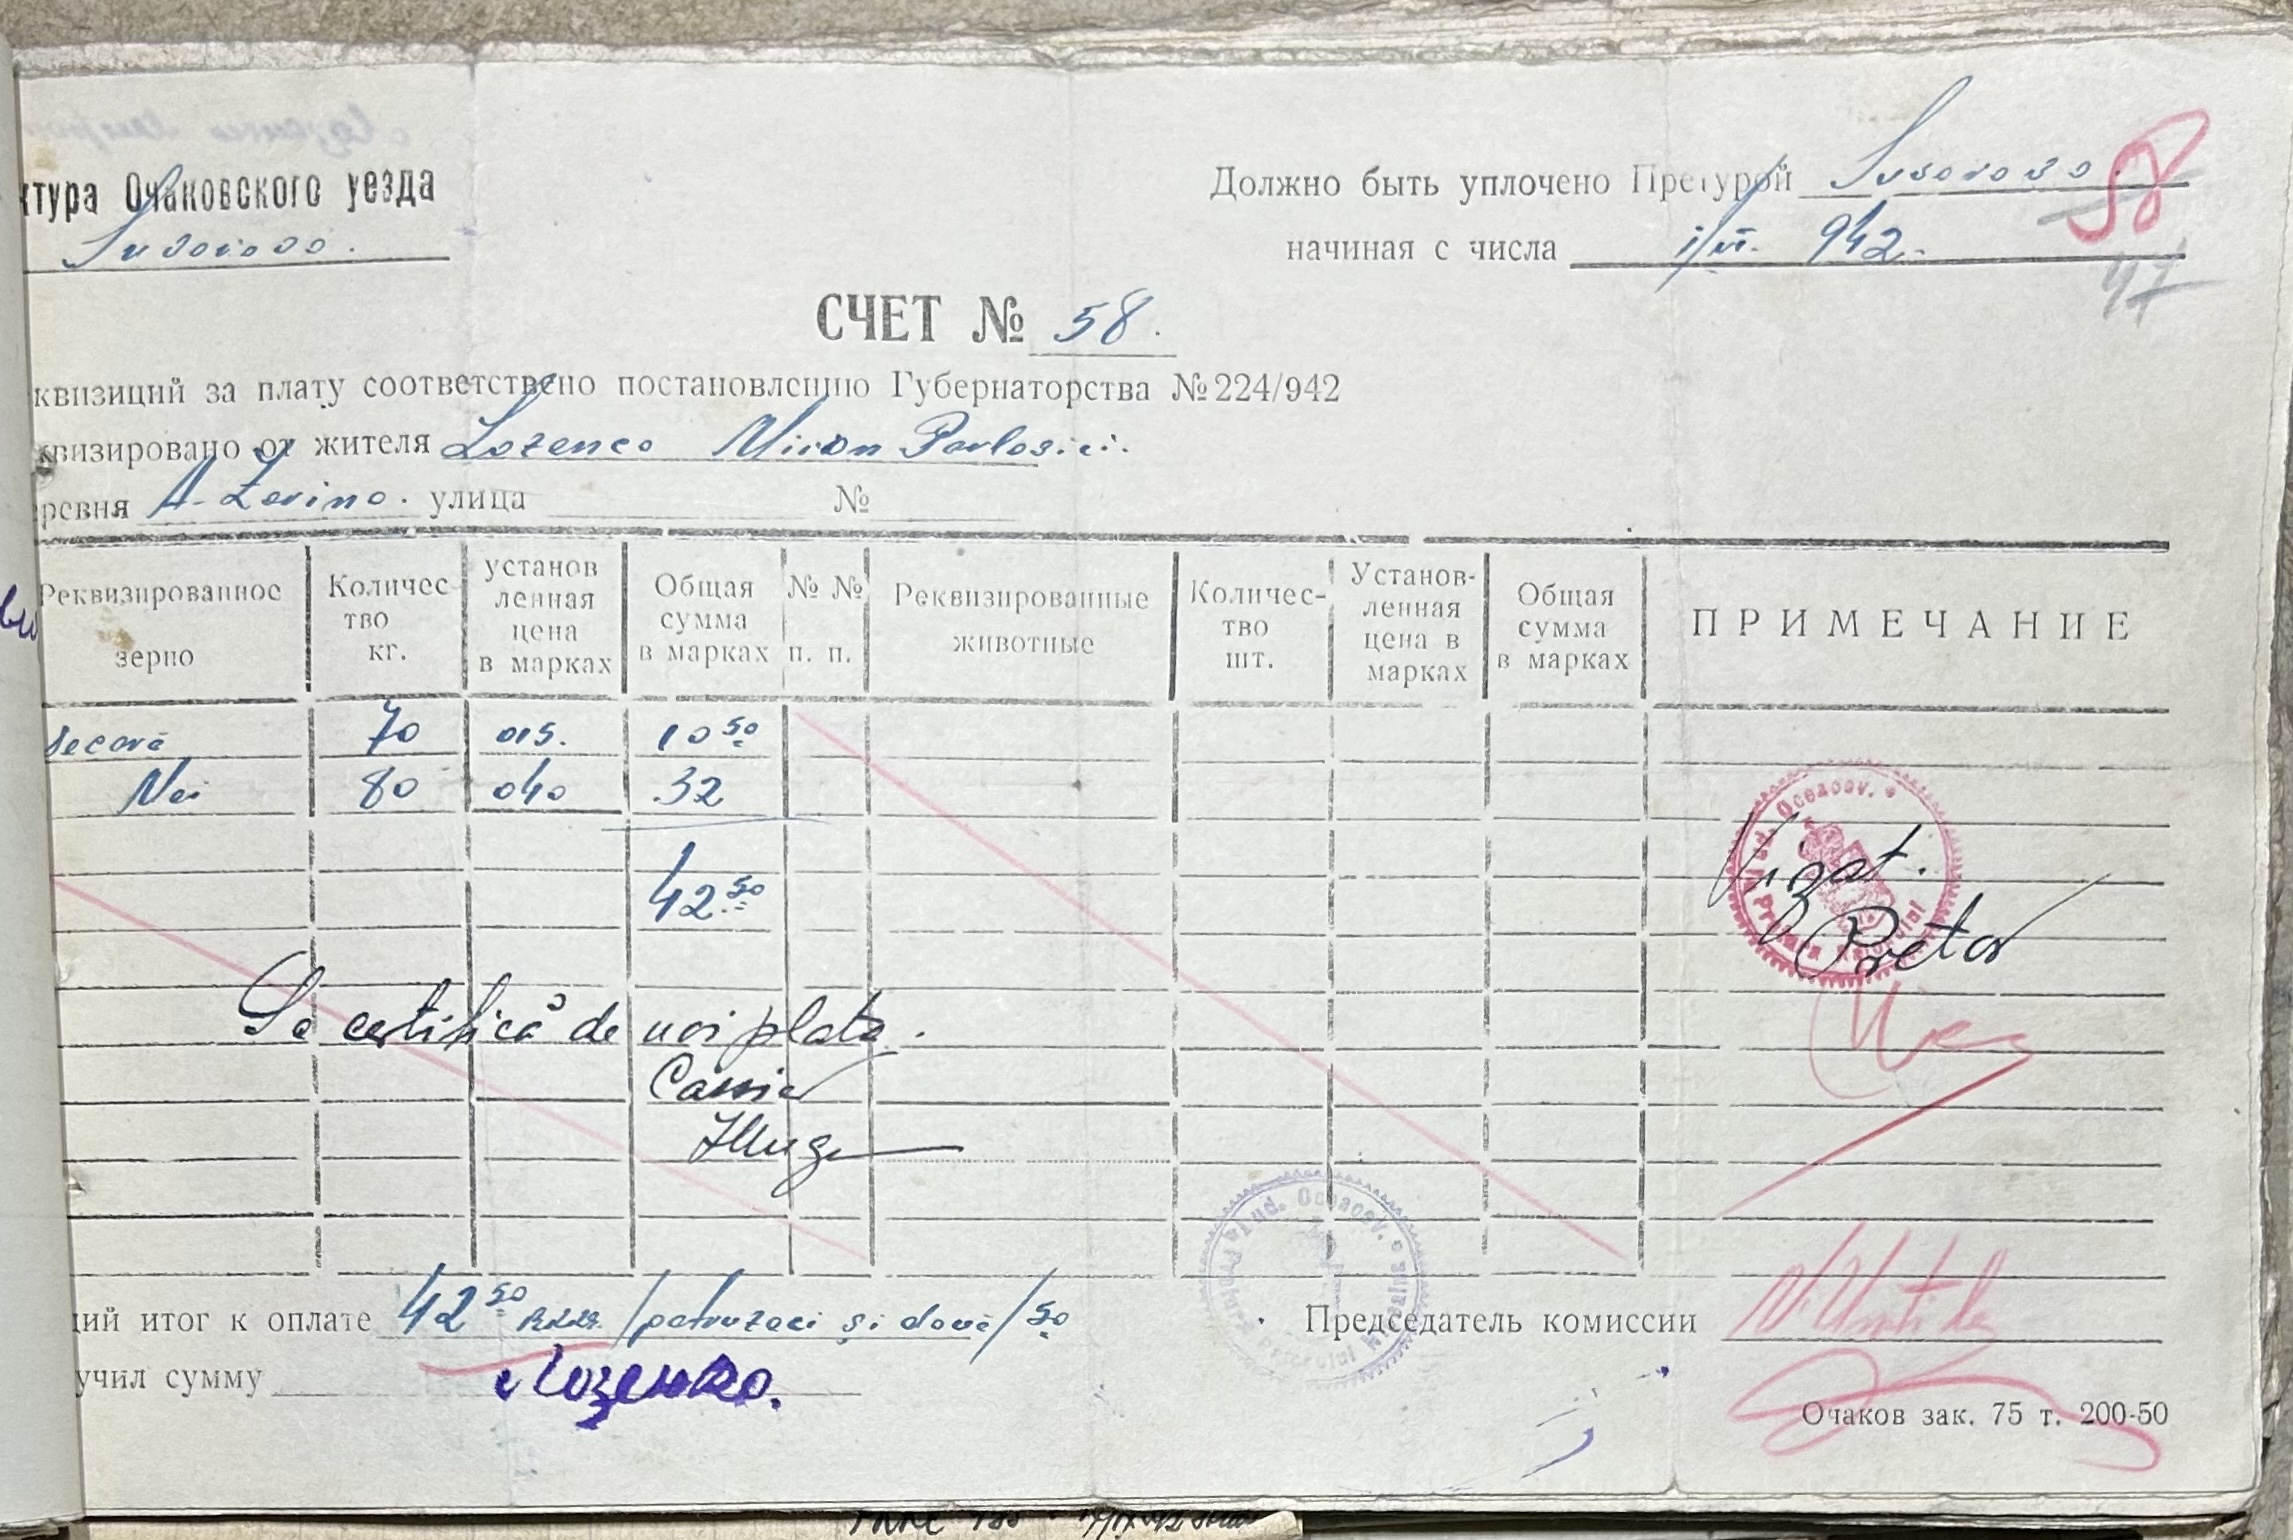 ктура Очаковского уезда
Suvorovo.
Должно быть уплочено Претурой Suvorovo.
58
начиная с числа 1/VI. 942.
47
СЧЕТ № 58.
квизиций за плату соответствено постановлению Губернаторства № 224/942
квизировано от жителя Lozenco Miron Pavlovici.
ревня A. Zarino. улица №
Реквизированное зерно
Количес тво кг.
установ ленная цена в марках
Общая сумма в марках
№ № п. п.
Реквизированные животные
Количес- тво шт.
Установ- ленная цена в марках
Общая сумма в марках
ПРИМЕЧАНИЕ
secară 70 015. 10 50
Mei 80 040 32
42.50
Vizat.
Pretor
Se certifică de noi plata.
Casier
щий итог к оплате 42 50 /patruzeci și două/50
Председатель комиссии
учил сумму Лозенко.
Очаков зак. 75 т. 200-50